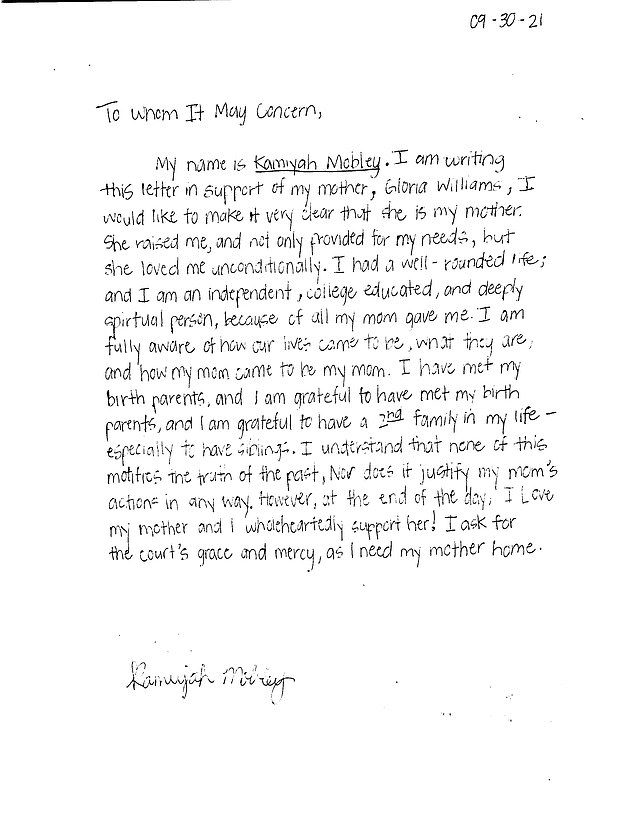 09-30-21
To Whom It May Concern,
My name is Kamiyah Mobley. I am writing
this letter in support of my mother, Gloria Williams, I
would like to make it very clear that she is my mother.
She raised me, and not only provided for my needs, but
she loved me unconditionally. I had a well-rounded life;
and I am an independent, college educated, and deeply
spirtual person, because of all my mom gave me. I am
fully aware of how our lives came to be, what they are,
and how my mom came to be my mom. I have met my
birth parents, and I am grateful to have met my birth
parents, and I am grateful to have a 2nd family in my life -
especially to have siblings. I understand that none of this
motifies the truth of the past, Nor does it justify my mom's
actions in any way. However, at the end of the day, I Love
my mother and I wholeheartedly support her! I ask for
the court's grace and mercy, as I need my mother home.
Kamiyah Mobley